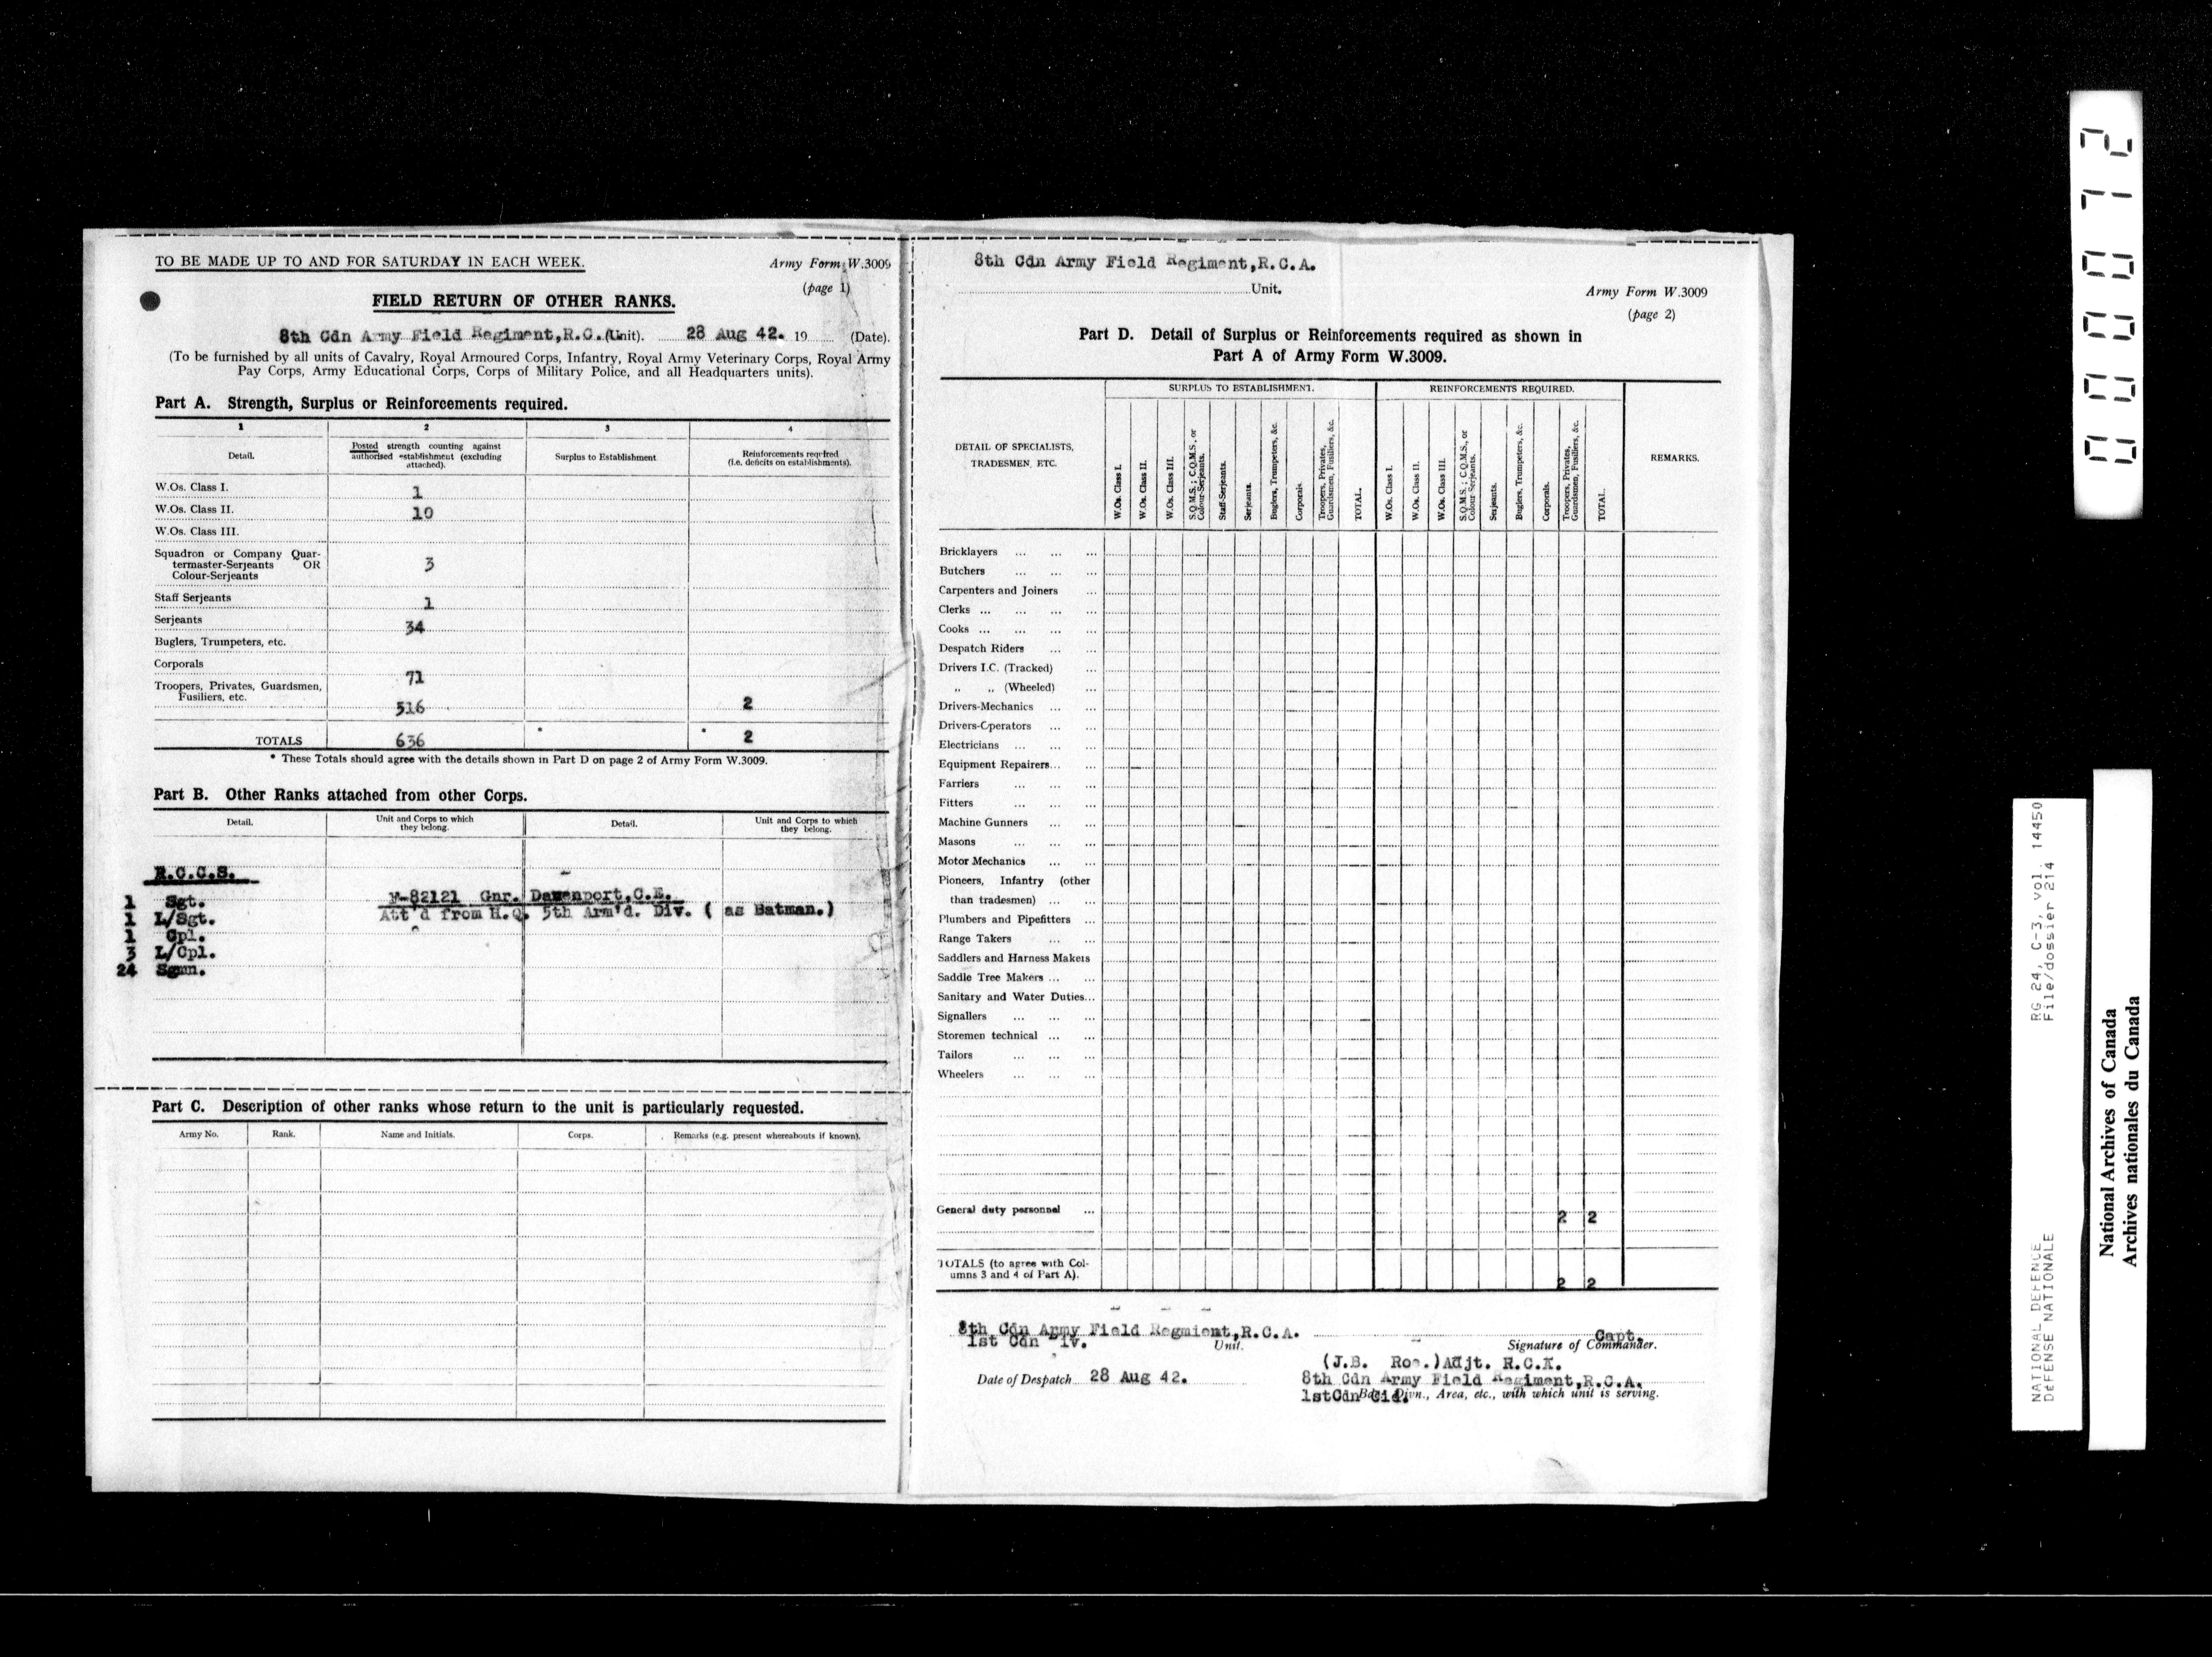 TO BE MADE UP TO AND FOR SATURDAY IN EACH WEEK.
Army Form W.3009
(page 1)
FIELD RETURN OF OTHER RANKS.
8th Cdn Army Field Regiment,R.C. (Unit). 28 Aug 42. 19 (Date).
(To be furnished by all units of Cavalry, Royal Armoured Corps, Infantry, Royal Army Veterinary Corps, Royal Army
Pay Corps, Army Educational Corps, Corps of Military Police, and all Headquarters units).
Part A. Strength, Surplus or Reinforcements required.
1 2 3 4
Detail. Posted strength counting against authorised establishment (excluding attached). Surplus to Establishment Reinforcements required (i.e. deficits on establishments).
W.Os. Class I. 1
W.Os. Class II. 10
W.Os. Class III.
Squadron or Company Quar-
termaster-Serjeants OR 3
Colour-Serjeants
Staff Serjeants 1
Serjeants 34
Buglers, Trumpeters, etc.
Corporals 71
Troopers, Privates, Guardsmen,
Fusiliers, etc. 516 2
TOTALS 636 * * 2
* These Totals should agree with the details shown in Part D on page 2 of Army Form W.3009.
Part B. Other Ranks attached from other Corps.
Detail. Unit and Corps to which they belong. Detail. Unit and Corps to which they belong.
R.C.C.S.
1 Sgt. F-82121 Gnr. Davenport,C.E.
1 L/Sgt. Att'd from H.Q. 5th Arm'd. Div. ( as Batman.)
1 Cpl.
3 L/Cpl.
24 Sgmn.
Part C. Description of other ranks whose return to the unit is particularly requested.
Army No. Rank. Name and Initials. Corps. Remarks (e.g. present whereabouts if known).
8th Cdn Army Field Regiment,R.C.A.
Unit.
Army Form W.3009
(page 2)
Part D. Detail of Surplus or Reinforcements required as shown in
Part A of Army Form W.3009.
SURPLUS TO ESTABLISHMENT. REINFORCEMENTS REQUIRED.
DETAIL OF SPECIALISTS,
TRADESMEN, ETC.
W.Os. Class I.
W.Os. Class II.
W.Os. Class III.
S.Q.M.S.; C.Q.M.S., or Colour-Serjeants.
Staff-Serjeants.
Serjeants.
Buglers, Trumpeters, &c.
Corporals.
Troopers, Privates, Guardsmen, Fusiliers, &c.
TOTAL.
W.Os. Class I.
W.Os. Class II.
W.Os. Class III.
S.Q.M.S.; C.Q.M.S., or Colour-Serjeants.
Serjeants.
Buglers, Trumpeters, &c.
Corporals.
Troopers, Privates, Guardsmen, Fusiliers, &c.
TOTAL.
REMARKS.
Bricklayers ... ... ...
Butchers ... ...
Carpenters and Joiners ...
Clerks ... ... ... ...
Cooks ... ... ... ...
Despatch Riders ... ...
Drivers I.C. (Tracked) ...
„ „ (Wheeled) ...
Drivers-Mechanics ... ...
Drivers-Operators ... ...
Electricians ... ... ...
Equipment Repairers... ...
Farriers ... ... ...
Fitters ... ... ...
Machine Gunners ... ...
Masons ... ... ...
Motor Mechanics ... ...
Pioneers, Infantry (other
than tradesmen) ... ...
Plumbers and Pipefitters ...
Range Takers ... ...
Saddlers and Harness Makers
Saddle Tree Makers ... ...
Sanitary and Water Duties...
Signallers ... ... ...
Storemen technical ... ...
Tailors ... ... ...
Wheelers ... ... ...
General duty personnel ... 2 2
TOTALS (to agree with Col-
umns 3 and 4 of Part A). 2 2
8th Cdn Army Field Regmient,R.C.A. Capt.
1st Cdn Div. Unit. Signature of Commander.
(J.B. Roe.)Adjt. R.C.A.
Date of Despatch 28 Aug 42. 8th Cdn Army Field Regiment,R.C.A.
1stCdn Bde., Divn., Area, etc., with which unit is serving.
00072
RG 24, C-3, vol. 14450
File/dossier 214
NATIONAL DEFENCE
DÉFENSE NATIONALE
National Archives of Canada
Archives nationales du Canada